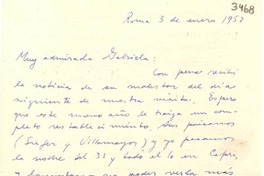 3468
Roma 3 de enero 1952
Muy admirada Gabriela:
Con pena recibí
la noticia de su malestar del día
siguiente de nuestra visita. Espero
que este nuevo año le traiga un com-
pleto restablecimiento. Sus paisanos
y Villamayor) y yo pasamos
la noche del 31 y todo el 1o en Capri,
no poder verla más